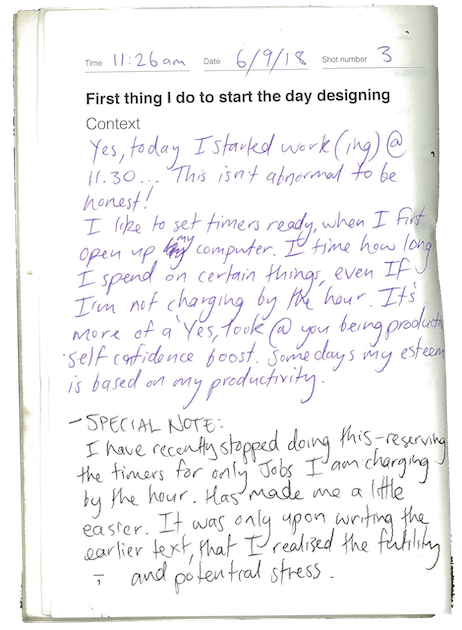 Time 11:26am Date 6/9/18 Shot number 3
First thing I do to start the day designing
Context
Yes, today I started work(ing) @
11.30... This isn't abnormal to be
honest!
I like to set timers ready, when I first
open up my computer. I time how long
I spend on certain things, even If
I'm not charging by the hour. It's
more of a 'Yes, look @ you being producti
self cofidence boost. Some days my esteem
is based on my productivity.
- SPECIAL NOTE:
I have recently stopped doing this - reserving
the timers for only Jobs I am charging
by the hour. Has made me a little
easier. It was only upon writing the
earlier text, that I realised the futility
and potential stress.